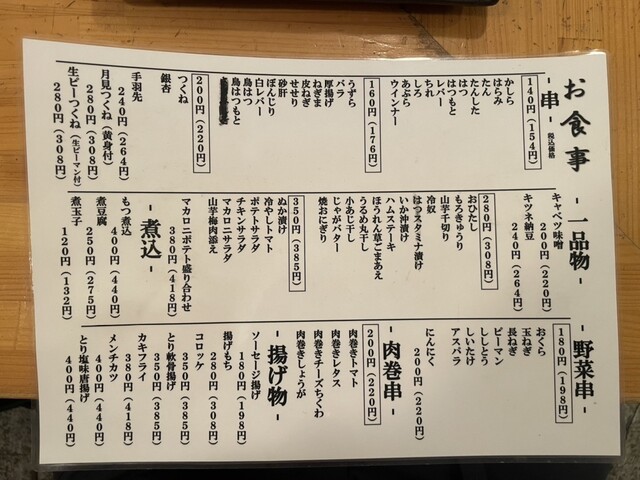 お食事
- 串 -
税込価格
140円(154円)
かしら
はらみ
たん
たんした
はつ
はつもと
レバー
ちれ
しろ
あぶら
ウィンナー
160円(176円)
うずら
バラ
厚揚げ
ねぎま
皮ねぎ
せせり
砂肝
ぼんじり
白レバー
鳥はつ
鳥はつもと
200円(220円)
つくね
銀杏
手羽先
240円(264円)
月見つくね(黄身付)
280円(308円)
生ピーつくね(生ピーマン付)
280円(308円)
- 一品物 -
キャベツ味噌
200円(220円)
キツネ納豆
240円(264円)
280円(308円)
おひたし
もろきゅうり
山芋千切り
冷奴
はつスタミナ漬け
いか沖漬け
ハムステーキ
ほうれん草ごまあえ
うるめ丸干し
小あじ干し
じゃがバター
焼おにぎり
350円(385円)
ぬか漬け
冷やしトマト
ポテトサラダ
チキンサラダ
マカロニサラダ
山芋梅肉添え
マカロニポテト盛り合わせ
380円(418円)
- 煮込 -
もつ煮込
400円(440円)
煮豆腐
250円(275円)
煮玉子
120円(132円)
- 野菜串 -
180円(198円)
おくら
玉ねぎ
長ねぎ
ピーマン
ししとう
しいたけ
アスパラ
にんにく
200円(220円)
- 肉巻串 -
200円(220円)
肉巻きトマト
肉巻きレタス
肉巻きチーズちくわ
肉巻きしょうが
- 揚げ物 -
ソーセージ揚げ
180円(198円)
揚げもち
280円(308円)
コロッケ
350円(385円)
とり軟骨揚げ
350円(385円)
カキフライ
380円(418円)
メンチカツ
400円(440円)
とり塩味唐揚げ
400円(440円)